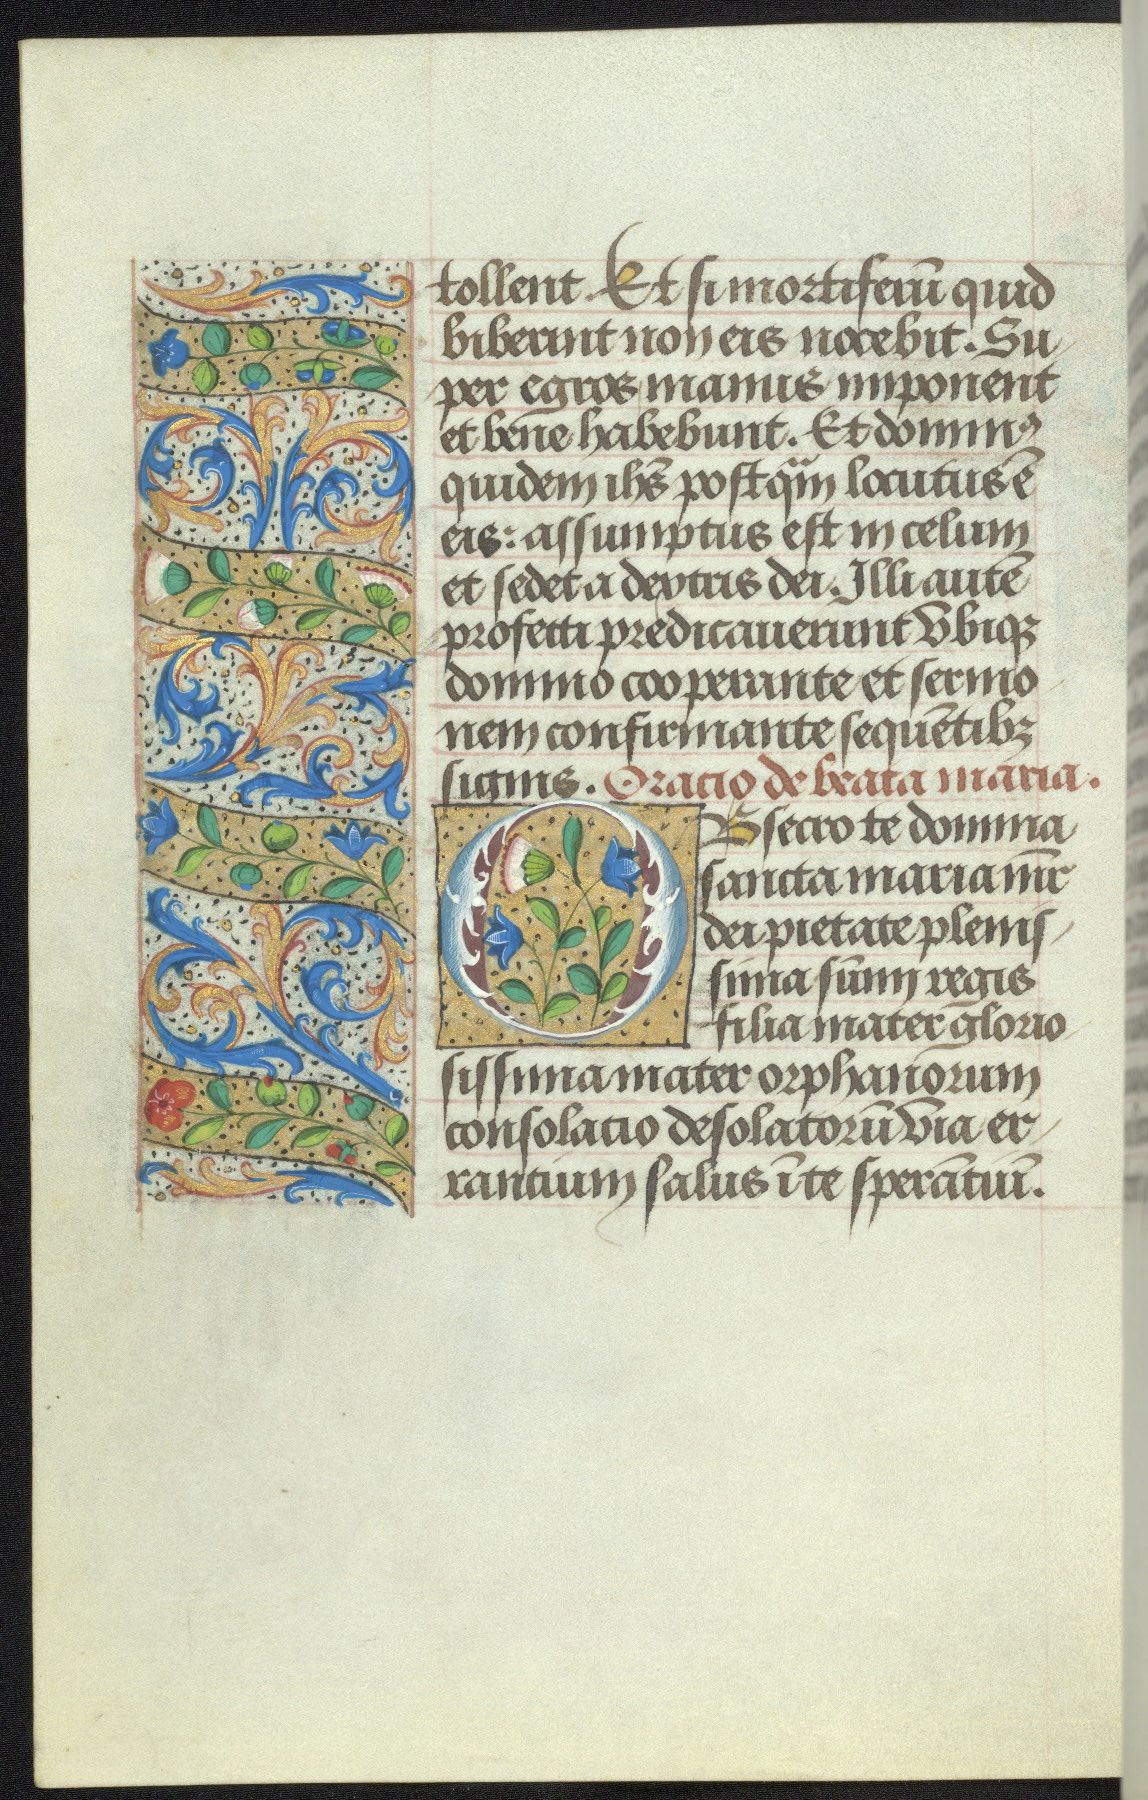 tollent. Et si mortiferū quid
biberint non eis nocebit. Su
per egros manus imponent
et bene habebunt. Et dominꝰ
quidem ihs̄ postqᷓm locutus ē
eis: assumptus est in celum
et sedet a dextris dei. Illi autē
profecti predicauerunt vbiqꝫ
domino cooperante et sermo
nem confirmante sequētibꝫ
signis. Oracio de beata maria.
Obsecro te domina
sancta maria mr̄
dei pietate plenis
sima sūmi regis
filia mater glorio
sissima mater orphanorum
consolacio desolatorū via er
rantium salus ī te sperātiū.